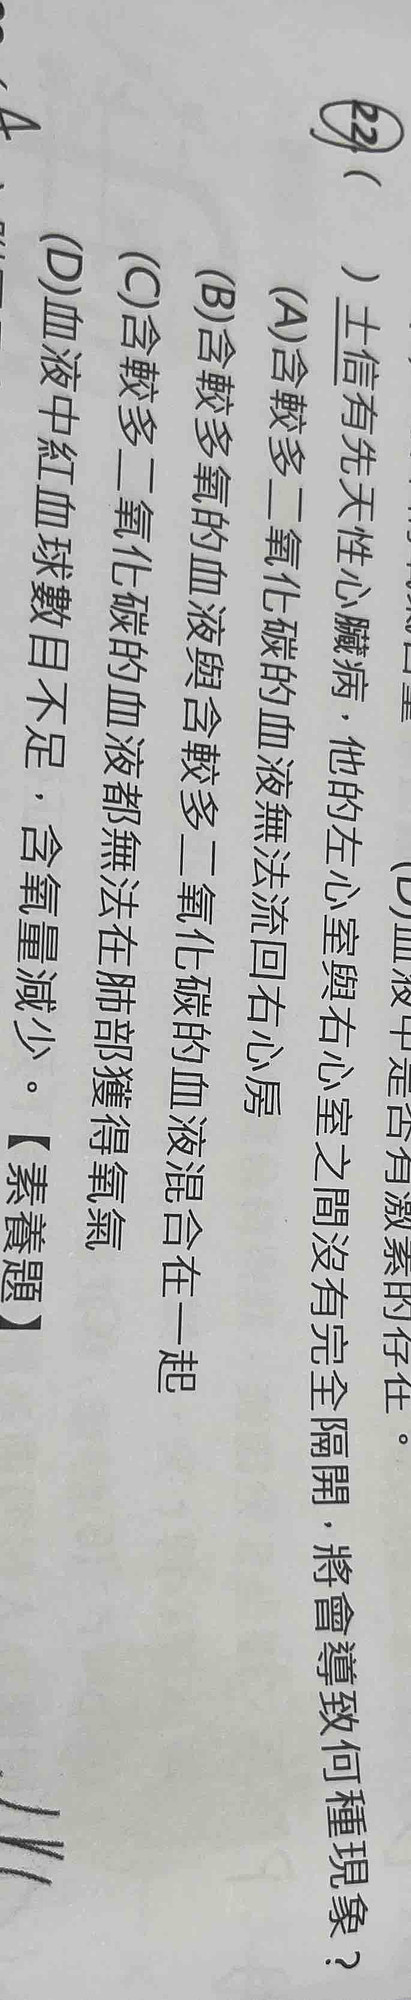 (D)血液中是否有激素的存在。
22.(　　)士信有先天性心臟病，他的左心室與右心室之間沒有完全隔開，將會導致何種現象？
(A)含較多二氧化碳的血液無法流回右心房
(B)含較多氧的血液與含較多二氧化碳的血液混合在一起
(C)含較多二氧化碳的血液都無法在肺部獲得氧氣
(D)血液中紅血球數目不足，含氧量減少。【素養題】
A